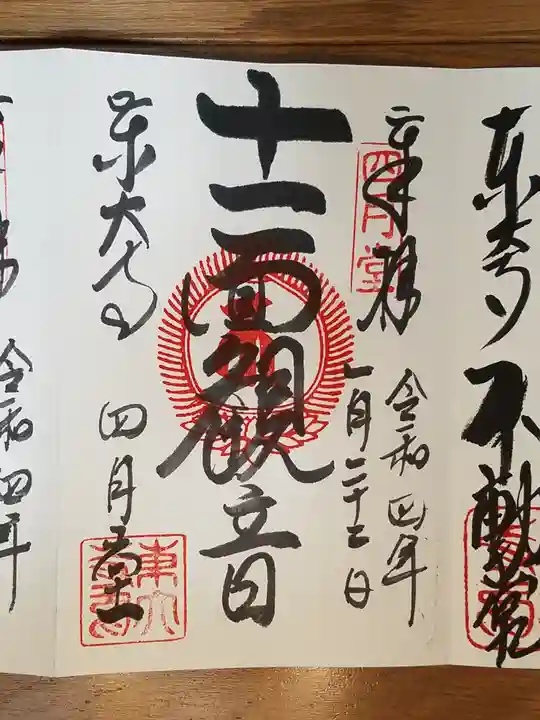 東大寺 不動堂
奉拝
四月堂
令和四年
一月二十二日
十一面観音
東大寺
四月堂
東大寺
令和四年